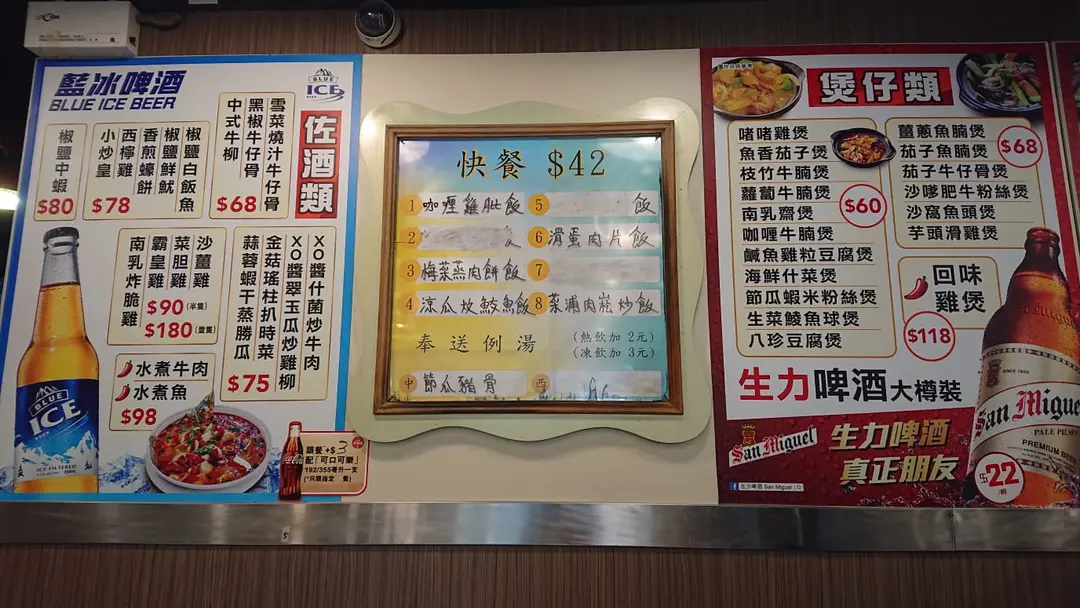 藍冰啤酒
BLUE ICE BEER
BLUE
ICE
佐酒類
雪菜燒汁牛仔骨
黑椒牛仔骨
中式牛柳
$68
椒鹽白飯魚
椒鹽鮮魷
香煎蠔餅
西檸雞
小炒皇
$78
椒鹽中蝦
$80
沙薑雞
菜膽雞
霸皇雞
南乳炸脆雞
$90(半隻)
$180(壹隻)
XO醬什菌炒牛肉
XO醬翠玉瓜炒雞柳
金菇瑤柱扒時菜
蒜蓉蝦干蒸勝瓜
$75
水煮牛肉
水煮魚
$98
BLUE
ICE
ICE FILTERED
跟餐+$3
配「可口可樂」
192/355毫升一支
(*只限指定 餐)
快餐 $42
1 咖喱雞扒飯
2
3 梅菜蒸肉餅飯
4 涼瓜炆鯪魚飯
5 飯
6 滑蛋肉片飯
7
8 菜浦肉崧炒飯
奉送例湯
(熱飲加 2元)
(凍飲加 3元)
中 節瓜豬骨
煲仔類
啫啫雞煲
魚香茄子煲
枝竹牛腩煲
蘿蔔牛腩煲
南乳齋煲
咖喱牛腩煲
鹹魚雞粒豆腐煲
海鮮什菜煲
節瓜蝦米粉絲煲
生菜鯪魚球煲
八珍豆腐煲
$60
薑蔥魚腩煲
茄子魚腩煲
茄子牛仔骨煲
沙嗲肥牛粉絲煲
沙窩魚頭煲
芋頭滑雞煲
$68
回味
雞煲
$118
生力啤酒大樽裝
San Miguel
生力啤酒
真正朋友
生力啤酒 San Miguel
SINCE 1890
San Miguel
PALE PILSEN
PREMIUM BEER
$22